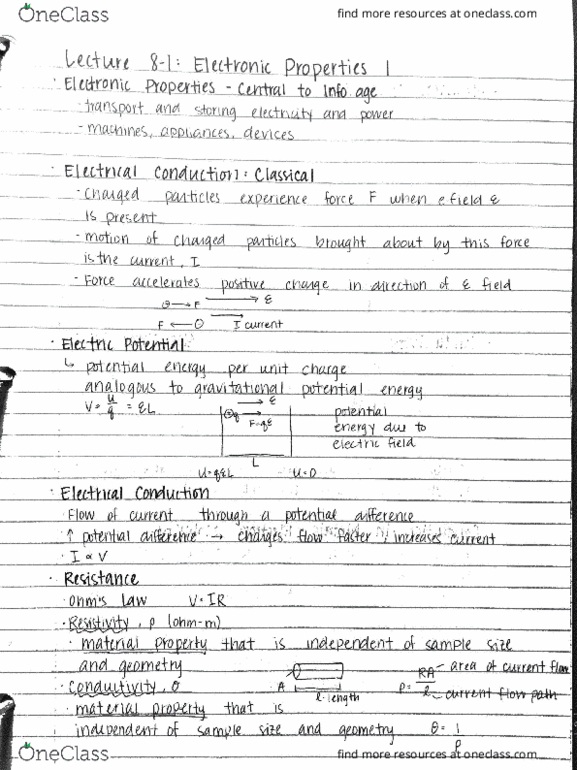 OneClass find more resources at oneclass.com
Lecture 8-1: Electronic Properties 1
· Electronic Properties - Central to Info age
- transport and storing electricity and power
- machines, appliances, devices
· Electrical Conduction: Classical
- Charged particles experience force F when e field ε
is present
- motion of charged particles brought about by this force
is the current, I
- Force accelerates positive charge in direction of ε field
⊕→F → ε
F ←⊖ → I current
· Electric Potential
↳ potential energy per unit charge
analogous to gravitational potential energy
V = u/q = εL
→ ε
⊕q → F=qε
potential
energy due to
electric field
L
U=qεL U=0
· Electrical Conduction
Flow of current through a potential difference
↑ potential difference → charges flow faster, increases current
· I ∝ V
· Resistance
· Ohm's Law V=IR
· Resistivity, ρ (ohm-m)
· material property that is independent of sample size
and geometry
A l=length
ρ = RA/l - area of current flow
- current flow path
· Conductivity, σ
· material property that is
independent of sample size and geometry σ = 1/ρ
OneClass find more resources at oneclass.com